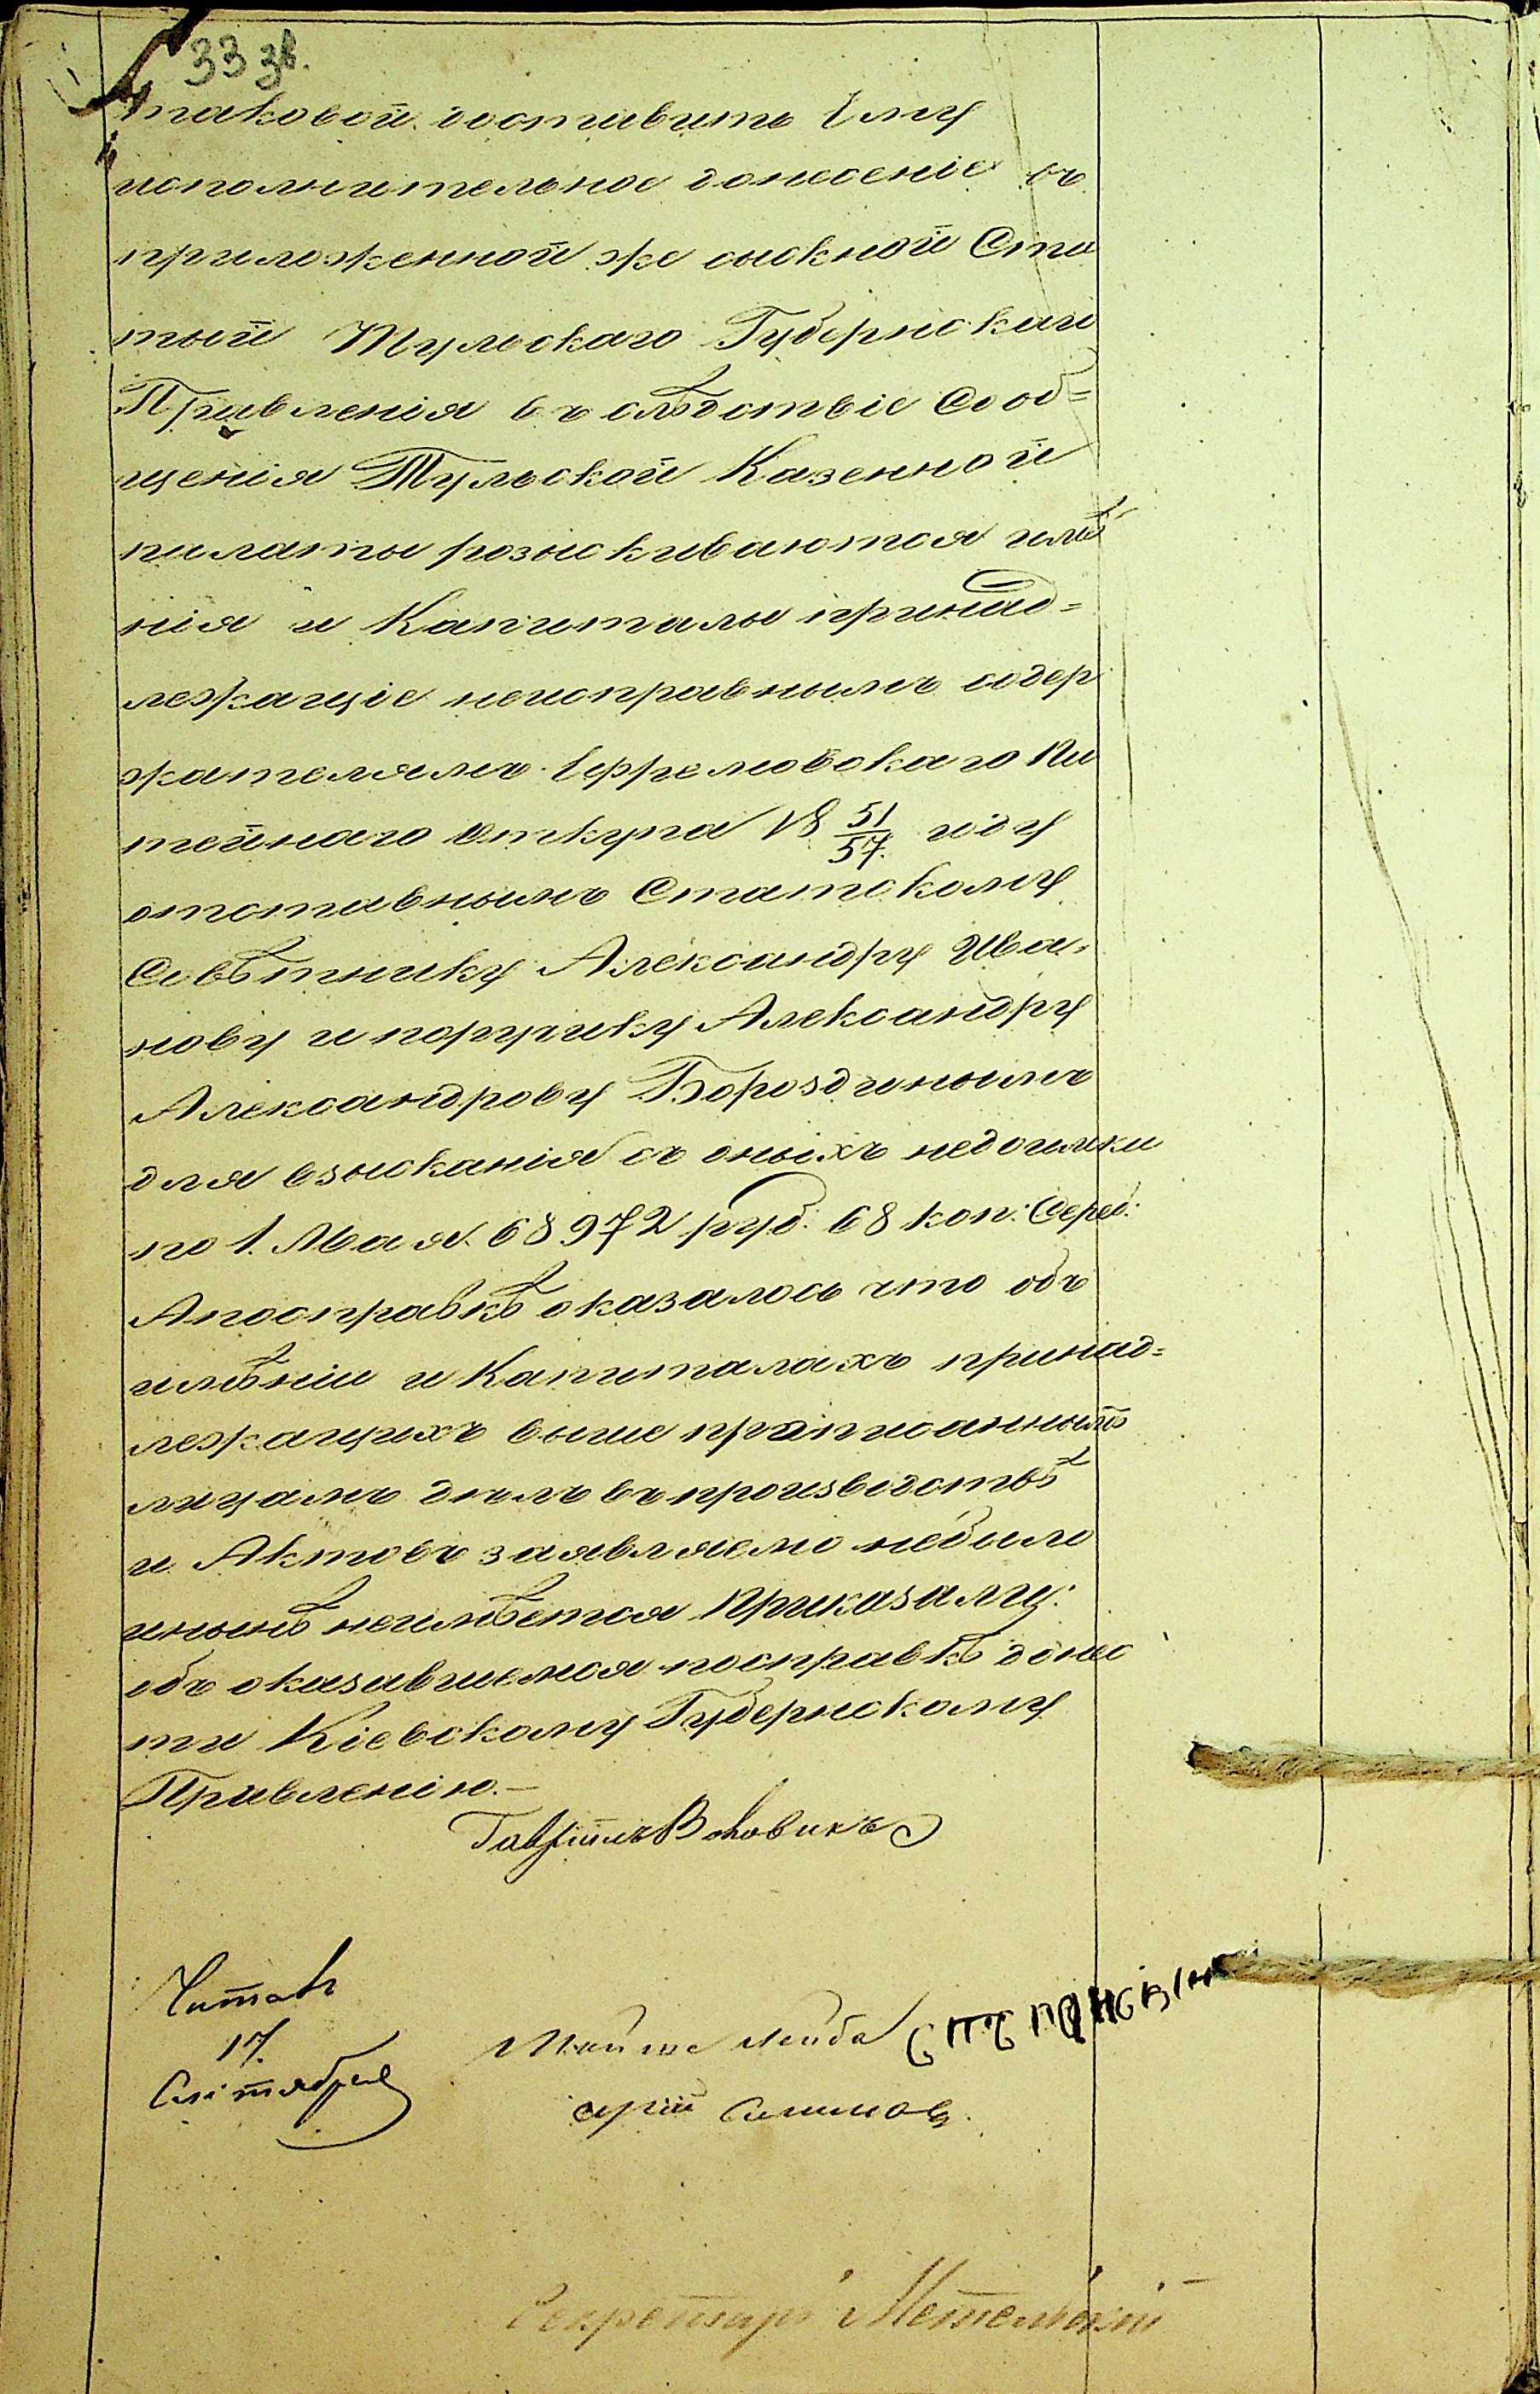 33 зв.
таковой доставить Ему
исполнительное донесеніе въ
приложенной же сыскной Ста
тьи Тульскаго Губернскаго
Правленія въ слѣдствіе Сооб=
щенія Тульской Казенной
палаты розыскиваются имѣ
нія и Капиталы принад=
лежащіе неисправнымъ содер
жателямъ Ефремовскаго Пи
тейнаго Откупа 18 51/57. году
отставнымъ Статскому
Совѣтнику Александру Ива=
нову и поручику Александру
Александрову Бороздинымъ
для взысканія съ оныхъ недоимки
по 1. Мая 68972 руб: 68 коп: Сереб:
А посправкѣ оказалось что объ
имѣніи и Капиталахъ принад=
лежащихъ выше прописаннымъ
лицамъ дѣлъ въ производствѣ
и Актовъ заявляемо небыло
инынѣ неимѣется Приказали:
объ оказавшемся посправкѣ донес
ти Кіевскому Губернскому
Правленію.-
Гавріилъ
Читалъ
17.
Сентября
Лейба
Секретарь Метельскій